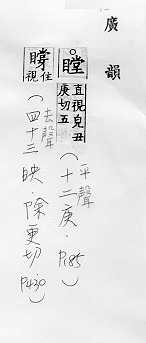 廣韻
瞠
直視皃丑
庚切五
(平聲
十二庚.P185)
住
視
(去聲
四十三映.除更切
P430)